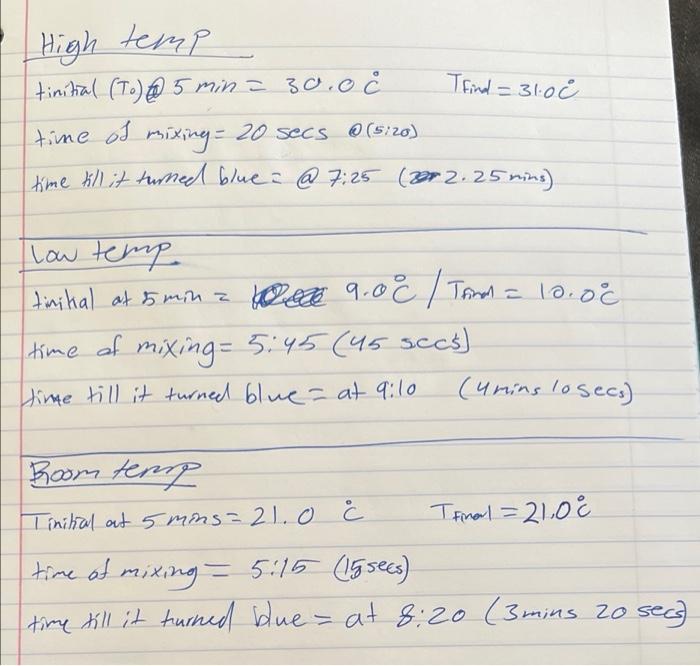 High temp
tinitial (T₀) @ 5 min = 30.0 °C TFinal = 31.0 °C
time of mixing = 20 secs @(5:20)
time till it turned blue = @ 7:25 (2.25 mins)
Low temp.
tinitial at 5 min = 9.0 °C / TFinal = 10.0 °C
time of mixing = 5:45 (45 secs)
time till it turned blue = at 9:10 (4 mins 10 secs)
Room temp
Tinitial at 5 mins = 21.0 °C TFinal = 21.0 °C
time of mixing = 5:15 (15 secs)
time till it turned blue = at 8:20 (3 mins 20 secs)